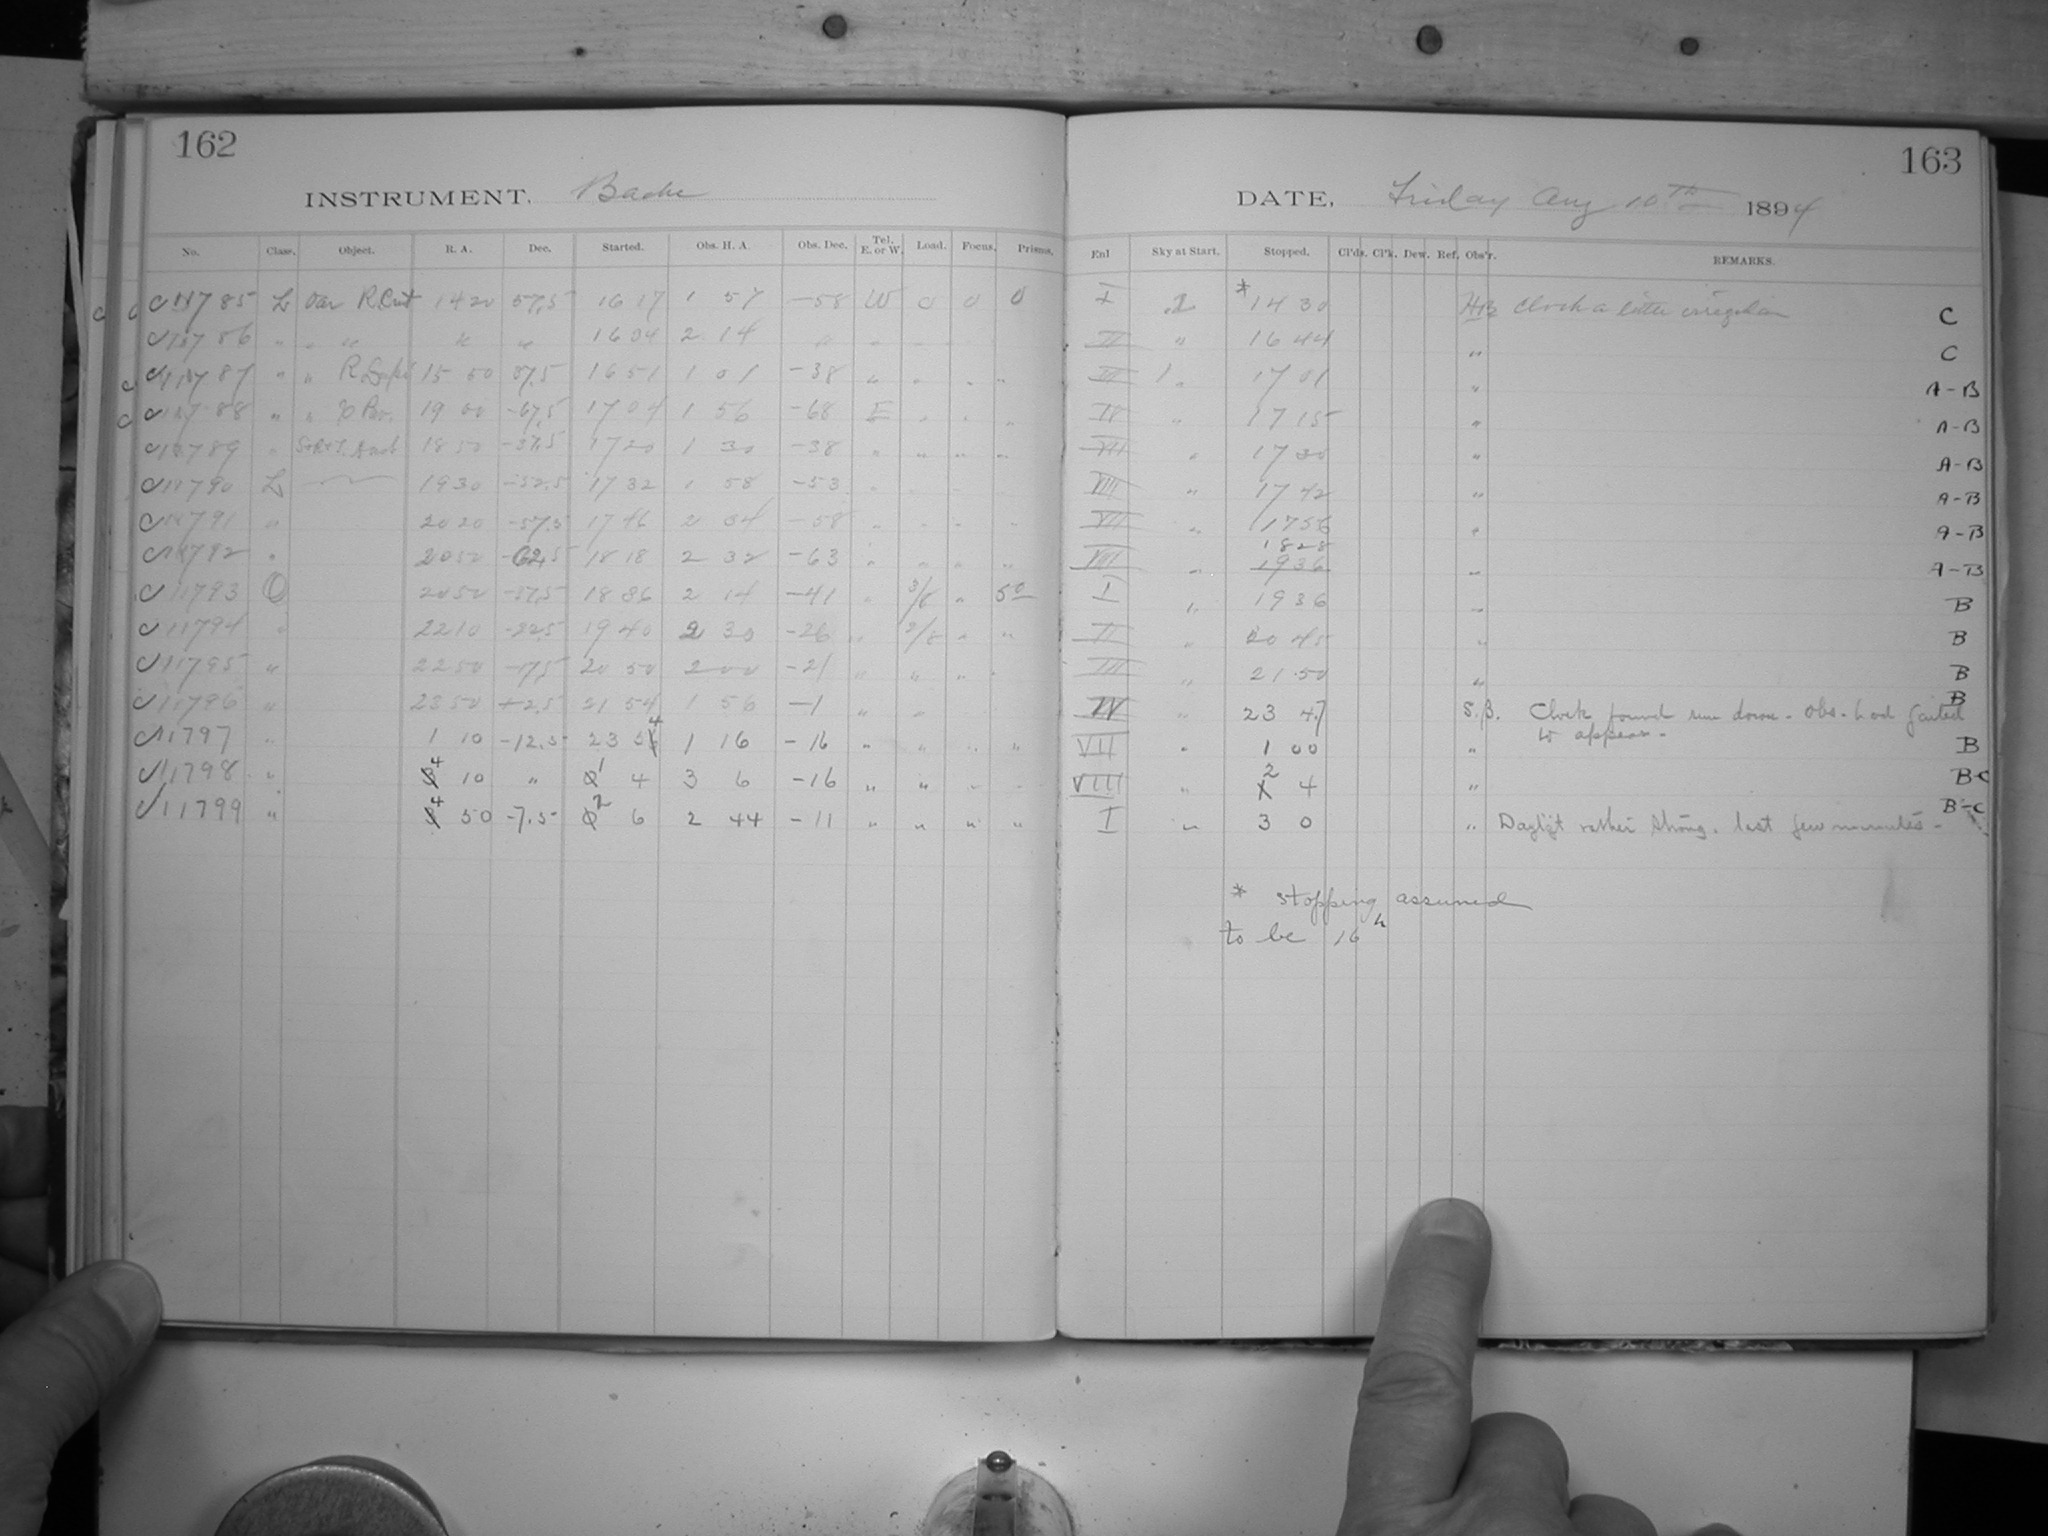 162
INSTRUMENT. Bache
No. Class. Object. R. A. Dec. Started. Obs. H. A. Obs. Dec. Tel. E. or W. Load. Focus. Prisms.
11785 L Var R. 14 20 57.5 16 17 1 57 -58 W 0 0 0
11786 " " " " " 16 34 2 14 " "
11787 " " R 15 50 37.5 16 51 1 01 -38 " " " "
11788 " " 19 00 -67.5 17 04 1 56 -68 E " " "
11789 " 18 50 -37.5 17 20 1 30 -38 " " " "
11790 L 19 30 -52.5 17 32 1 58 -53 " " "
11791 " 20 20 -57.5 17 46 2 34 -58 " " " "
11792 " 20 50 -62.5 18 18 2 32 -63 " " " "
11793 O 20 50 -37.5 18 36 2 14 -41 " 3/8 " 50
11794 " 22 10 -22.5 19 40 2 30 -26 " 3/8 " "
11795 " 22 50 -17.5 20 50 2 00 -21 " " " "
11796 " 23 50 +2.5 21 54 1 56 -1 " "
11797 " 1 10 -12.5 23 54 1 16 -16 " " " "
11798 " 4 10 " 1 4 3 6 -16 " " " "
11799 " 4 50 -7.5 2 6 2 44 -11 " " " "
163
DATE, Friday Aug 10th 1894
Enl Sky at Start. Stopped. Cl'ds. Cl'k. Dew. Ref. Obs'r. REMARKS.
2 * 14 30 Clock a little irregular C
" 16 44 " C
1 " 17 01 " A-B
" 17 15 " A-B
" 17 30 " A-B
VIII " 17 42 " A-B
VII " 17 56 " A-B
18 28
VIII " 19 36 " A-B
I " 19 36 " B
II " 20 45 " B
III " 21 50 " B
IV " 23 47 S.B. Clock found run down - Obs. had failed B
to appear -
VII " 1 00 " B
VIII " 2 4 " B-C
I " 3 0 " Daylight rather strong. last few minutes - B-C
* stopping assumed
to be 16h